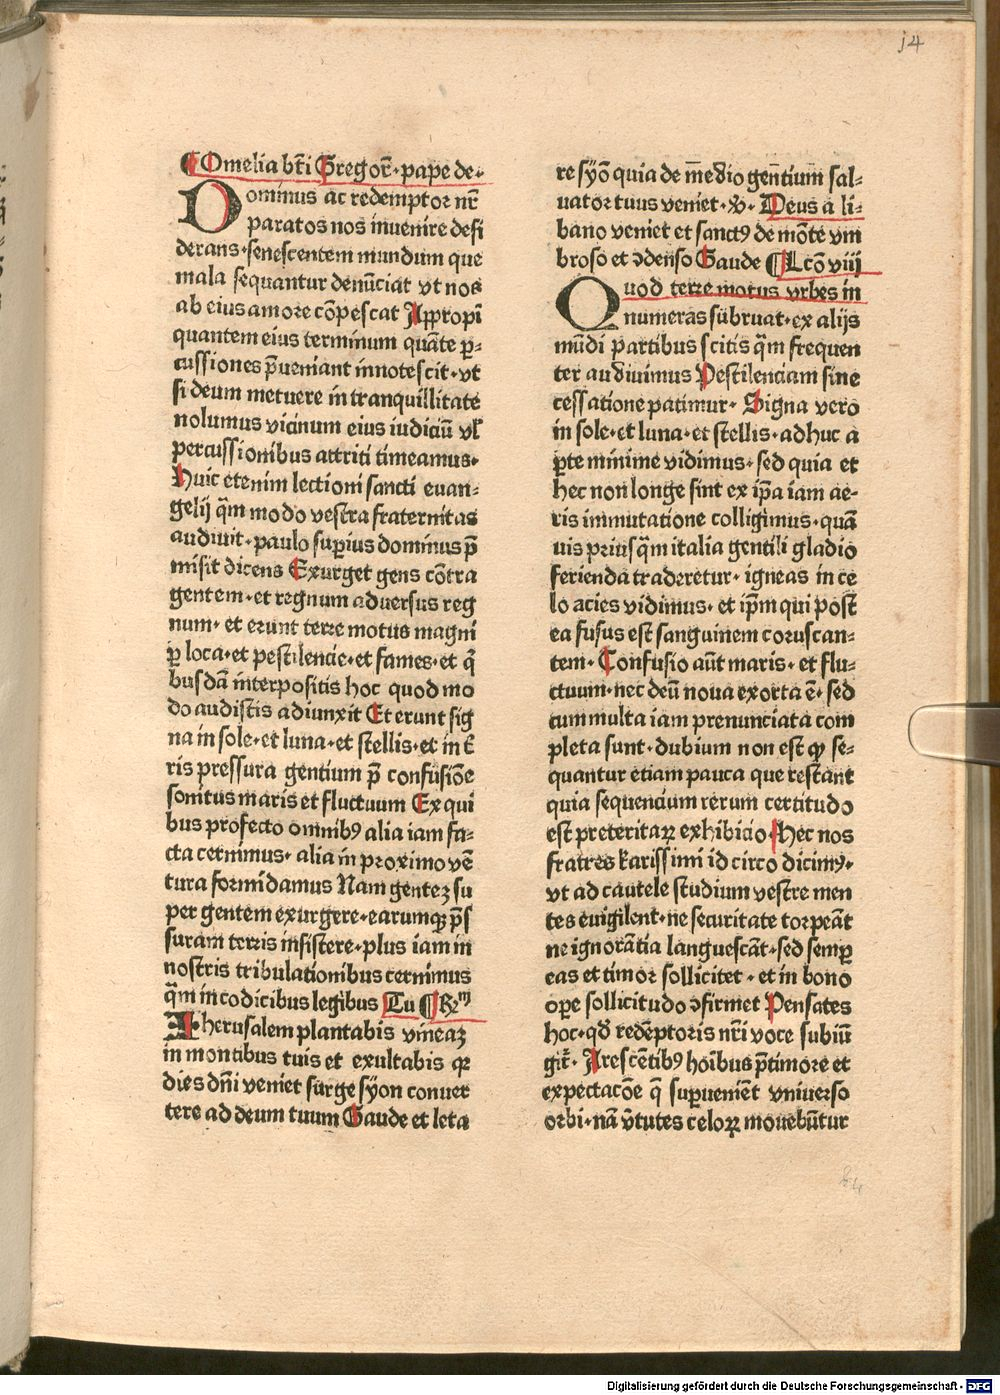 14
¶Omelia bt̄i Gregor̄· pape de·
Dominus ac redemptor nr̄
paratos nos inuenire desi
derans·senescentem mundum que
mala sequantur denūciat vt nos
ab eius amore cōpescat Appropī
quantem eius terminum quāte ꝑ-
cussiones p̄ueniant innotescit·vt
si deum metuere in tranquillitate
nolumus vicinum eius iudiciū vl̄
percussionibus attriti timeamus·
Huic etenim lectioni sancti euan-
gelij qm̄ modo vestra fraternitas
audiuit·paulo suꝑius dominus p̄
misit dicens Exurget gens cōtra
gentem·et regnum aduersus reg
num· et erunt terre motus magni
ꝑ loca·et pestilencie·et fames·et q̄
busdā interpositis hoc quod mo
do audistis adiunxit Et erunt sig
na in sole·et luna·et stellis·et in t̄
ris pressura gentium p̄ confusiōe
sonitus maris et fluctuum Ex qui
bus profecto omnibꝰ alia iam fa-
cta cernimus· alia in proximo vē
tura formidamus Nam genteʒ su
per gentem exurgere·earumqꝫ p̄s
suram terris insistere·plus iam in
nostris tribulationibus cernimus
qm̄ in codicibus legibus Tu ¶R̄m
Iherusalem plantabis vineaʒ
in montibus tuis et exultabis qr
dies dn̄i veniet surge syon conuer
tere ad deum tuum Gaude et leta
re syō quia de medio gentium sal-
uator tuus veniet·V· Deus a li-
bano veniet et sanctꝰ de mōte vm
broso et ↄdenso Gaude ¶Lcō viij
Quod terre motus vrbes in
numeras subruat·ex alijs
mūdi partibus scitis qm̄ frequen
ter audiuimus Pestilenciam sine
cessatione patimur· Signa vero
in sole·et luna·et stellis·adhuc a
ꝑte minime vidimus·sed quia et
hec non longe sint ex ip̄a iam ae-
ris immutatione colligimus·quā
uis priusqm̄ italia gentili gladio
ferienda traderetur· igneas in ce
lo acies vidimus· et ip̄m qui post
ea fusus est sanguinem coruscan-
tem· Confusio aūt maris·et flu-
ctuum·nec deū noua exorta ē·sed
cum multa iam prenunciata com
pleta sunt·dubium non est ꝙ se-
quantur etiam pauca que restant
quia sequencium rerum certitudo
est preteritaꝝ exhibicio·Hec nos
fratres karissimi id circo dicimꝰ·
vt ad cautele studium vestre men
tes euigilent·ne securitate torpeāt
ne ignorātia languescāt·sed semꝑ
eas et timor sollicitet·et in bono
oꝑe sollicitudo ↄfirmet Pensates
hoc·qd̄ redēptoris nr̄i voce subiū
git̄· Arescētibꝰ hoībus p̄timore et
expectacōe q̄ suꝑueniēt vniuerso
orbi·nā v̄tutes celoꝝ mouebūtur
Digitalisierung gefördert durch die Deutsche Forschungsgemeinschaft - DFG